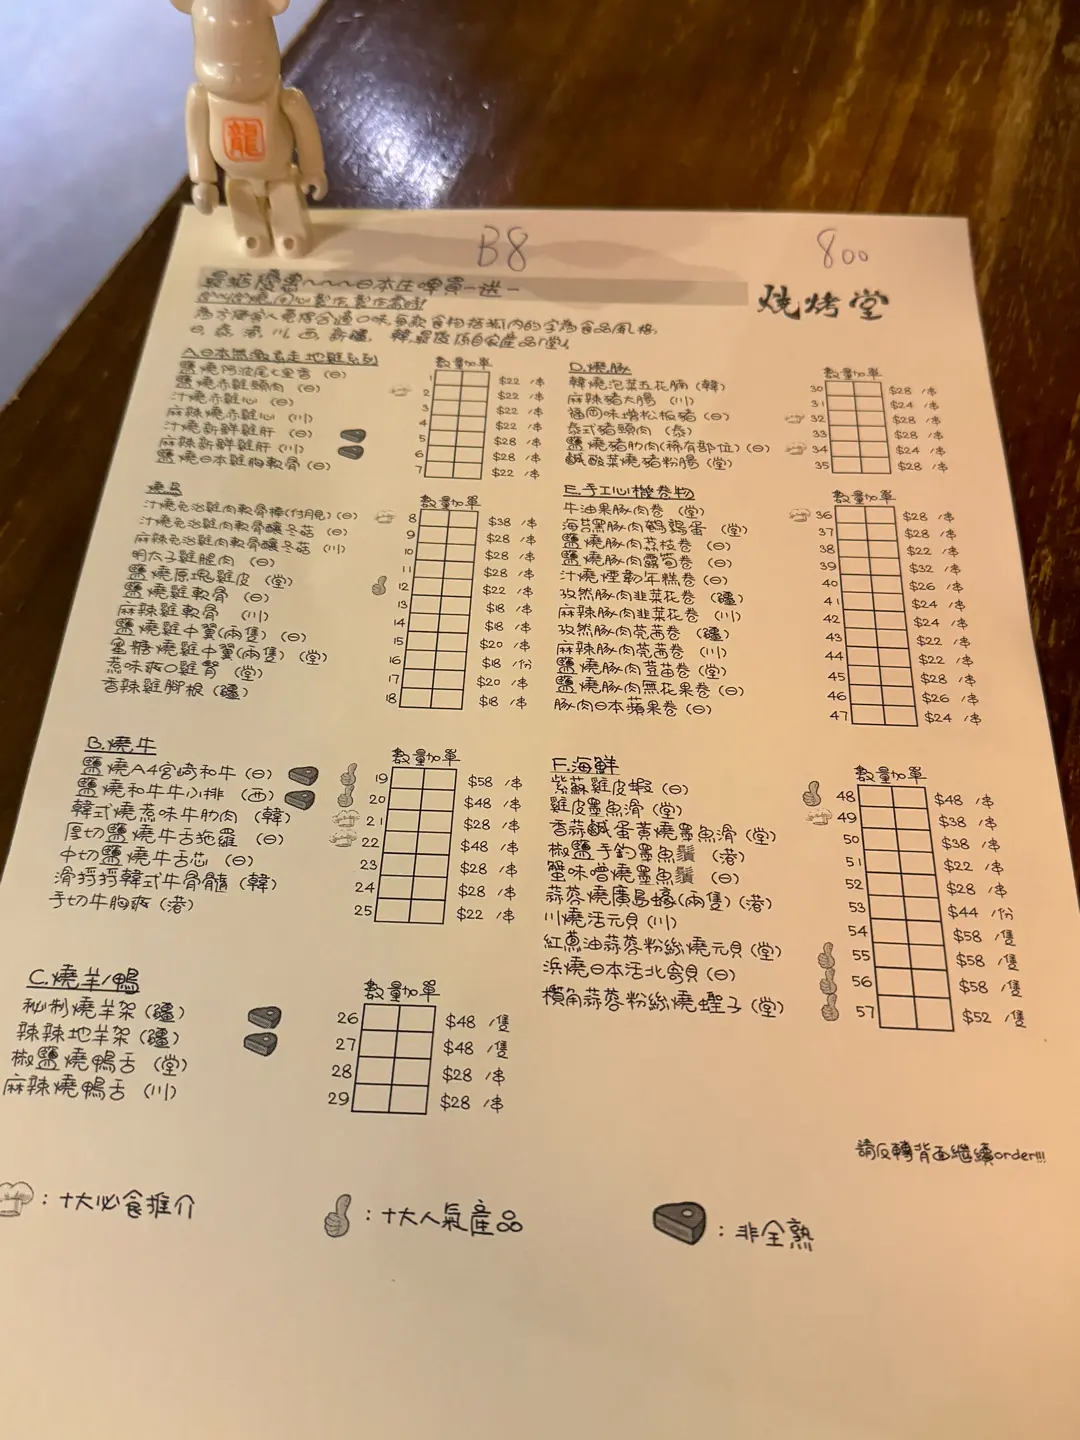 龍
B8
800
最強優惠~~~日本生啤買一送一
燒烤堂
日, 泰, 港, 川, 西, 新疆, 韓,
A.日本無激素走地雞系列
數量加單
鹽燒阿油尾七里香 (日) 1 $22 /串
鹽燒赤雞頸肉 (日) 2 $22 /串
汁燒赤雞心 (日) 3 $22 /串
麻辣燒赤雞心 (川) 4 $22 /串
汁燒新鮮雞肝 (日) 5 $28 /串
麻辣新鮮雞肝 (川) 6 $28 /串
鹽燒日本雞胸軟骨 (日) 7 $22 /串
燒鳥
數量加單
汁燒免治雞肉軟骨棒(付月見) (日) 8 $38 /串
汁燒免治雞肉軟骨釀冬菇 (日) 9 $28 /串
麻辣免治雞肉軟骨釀冬菇 (川) 10 $28 /串
明太子雞腿肉 (日) 11 $28 /串
鹽燒原塊雞皮 (堂) 12 $22 /串
鹽燒雞軟骨 (日) 13 $18 /串
麻辣雞軟骨 (川) 14 $18 /串
鹽燒雞中翼(兩隻) (日) 15 $20 /串
蜜糖燒雞中翼(兩隻) (堂) 16 $18 /份
惹味爽口雞腎 (堂) 17 $20 /串
香辣雞腳根 (疆) 18 $18 /串
B.燒牛
數量加單
鹽燒A4宮崎和牛 (日) 19 $58 /串
鹽燒和牛牛小排 (西) 20 $48 /串
韓式燒惹味牛肋肉 (韓) 21 $28 /串
厚切鹽燒牛舌拖羅 (日) 22 $48 /串
中切鹽燒牛舌芯 (日) 23 $28 /串
滑捋捋韓式牛骨髓 (韓) 24 $28 /串
手切牛胸爽 (港) 25 $22 /串
C.燒羊/鴨
數量加單
秘制燒羊架 (疆) 26 $48 /隻
辣辣地羊架 (疆) 27 $48 /隻
椒鹽燒鴨舌 (堂) 28 $28 /串
麻辣燒鴨舌 (川) 29 $28 /串
D.燒豚
數量加單
韓燒泡菜五花腩 (韓) 30 $28 /串
麻辣豬大腸 (川) 31 $24 /串
福岡味增松板豬 (日) 32 $28 /串
泰式豬頸肉 (泰) 33 $28 /串
鹽燒豬肋肉(稀有部位) (日) 34 $24 /串
鹹酸菜燒豬粉腸 (堂) 35 $28 /串
E.手工心機卷物
數量加單
牛油果豚肉卷 (堂) 36 $28 /串
海苔黑豚肉鵪鶉蛋 (堂) 37 $28 /串
鹽燒豚肉荔枝卷 (日) 38 $22 /串
鹽燒豚肉露筍卷 (日) 39 $32 /串
汁燒煙韌年糕卷 (日) 40 $26 /串
孜然豚肉韭菜花卷 (疆) 41 $24 /串
麻辣豚肉韭菜花卷 (川) 42 $24 /串
孜然豚肉芫茜卷 (疆) 43 $22 /串
麻辣豚肉芫茜卷 (川) 44 $22 /串
鹽燒豚肉荳苗卷 (堂) 45 $28 /串
鹽燒豚肉無花果卷 (日) 46 $26 /串
豚肉日本蘋果卷 (日) 47 $24 /串
F.海鮮
數量加單
紫蘇雞皮蝦 (日) 48 $48 /串
雞皮墨魚滑 (堂) 49 $38 /串
香蒜鹹蛋黃燒墨魚滑 (堂) 50 $38 /串
椒鹽手釣墨魚鬚 (港) 51 $22 /串
蟹味噌燒墨魚鬚 (日) 52 $28 /串
蒜蓉燒廣島蠔(兩隻) (港) 53 $44 /份
川燒活元貝 (川) 54 $58 /隻
紅蔥油蒜蓉粉絲燒元貝 (堂) 55 $58 /隻
浜燒日本活北寄貝 (日) 56 $58 /隻
欖角蒜蓉粉絲燒蟶子 (堂) 57 $52 /隻
請反轉背面繼續order!!!
: 十大必食推介
: 十大人氣產品
: 非全熟